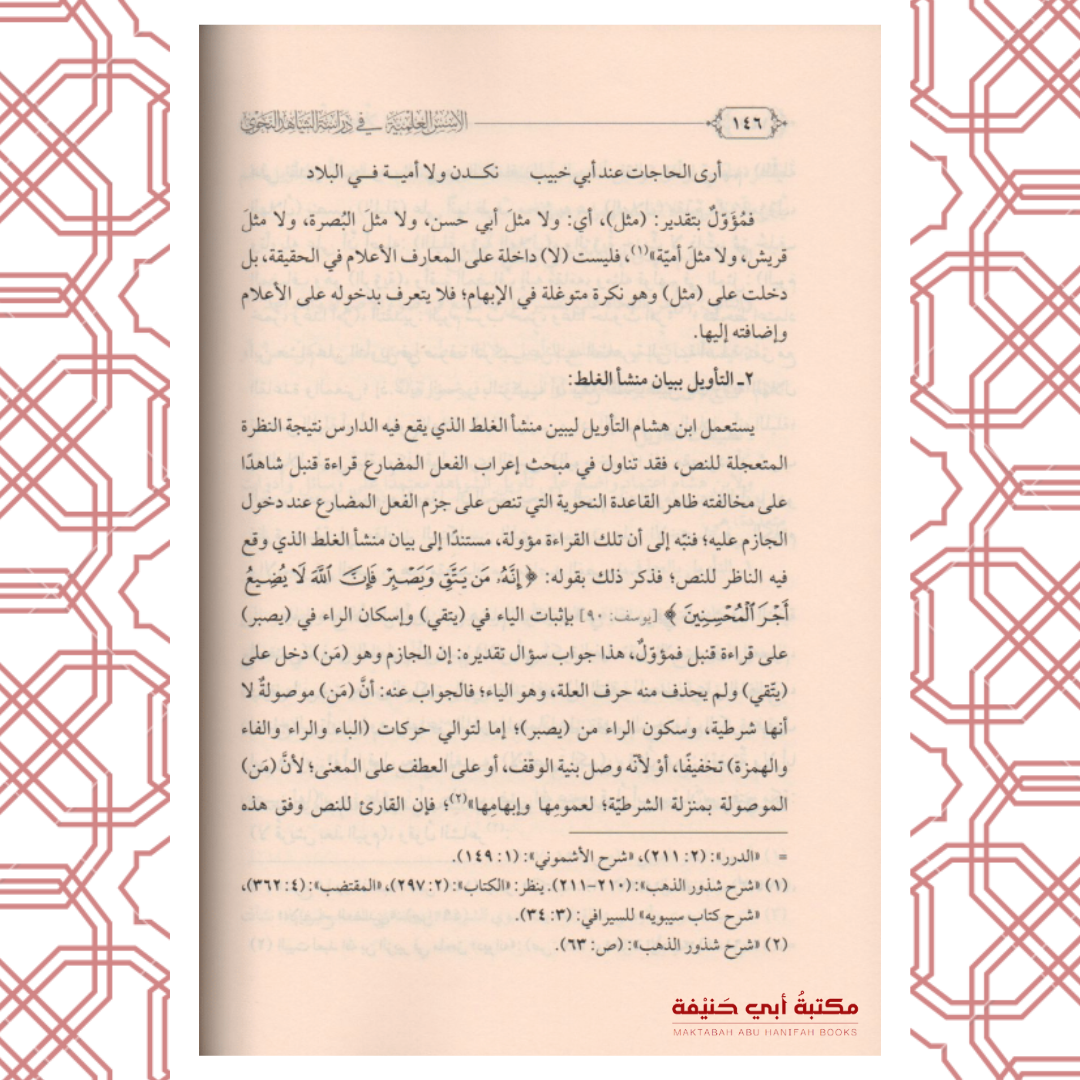 ١٤٦ الأسس العلمية في دراسة الشاهد النحوي
أرى الحاجات عند أبي خبيب نكـدن ولا أميـة فـي البلاد
فمُؤَوّلٌ بتقدير: (مثل)، أي: ولا مثلَ أبي حسن، ولا مثلَ البُصرة، ولا مثلَ
قريش، ولا مثلَ أميّة»(١)، فليست (لا) داخلة على المعارف الأعلام في الحقيقة، بل
دخلت على (مثل) وهو نكرة متوغلة في الإبهام؛ فلا يتعرف بدخوله على الأعلام
وإضافته إليها.
٢ـ التأويل ببيان منشأ الغلط:
يستعمل ابن هشام التأويل ليبين منشأ الغلط الذي يقع فيه الدارس نتيجة النظرة
المتعجلة للنص، فقد تناول في مبحث إعراب الفعل المضارع قراءة قنبل شاهدًا
على مخالفته ظاهر القاعدة النحوية التي تنص على جزم الفعل المضارع عند دخول
الجازم عليه؛ فنبّه إلى أن تلك القراءة مؤولة، مستندًا إلى بيان منشأ الغلط الذي وقع
فيه الناظر للنص؛ فذكر ذلك بقوله: ﴿إِنَّهُۥ مَن يَتَّقِ وَيَصْبِرْ فَإِنَّ ٱللَّهَ لَا يُضِيعُ
أَجْرَ ٱلْمُحْسِنِينَ﴾ [يوسف: ٩٠] بإثبات الياء في (يتقي) وإسكان الراء في (يصبر)
على قراءة قنبل فمؤوّلٌ، هذا جواب سؤال تقديره: إن الجازم وهو (مَن) دخل على
(يتّقي) ولم يحذف منه حرف العلة، وهو الياء؛ فالجواب عنه: أنَّ (مَن) موصولةٌ لا
أنها شرطية، وسكون الراء من (يصبر)؛ إما لتوالي حركات (الباء والراء والفاء
والهمزة) تخفيفًا، أوْ لأنه وصل بنية الوقف، أو على العطف على المعنى؛ لأنَّ (مَن)
الموصولة بمنزلة الشرطيّة؛ لعمومها وإبهامها»(٢)؛ فإن القارئ للنص وفق هذه
= «الدرر»: (٢: ٢١١)، «شرح الأشموني»: (١: ١٤٩).
(١) «شرح شذور الذهب»: (٢١٠-٢١١). ينظر: «الكتاب»: (٢: ٢٩٧)، «المقتضب»: (٤: ٣٦٢)،
«شرح كتاب سيبويه» للسيرافي: (٣: ٣٤).
(٢) «شرح شذور الذهب»: (ص: ٦٣).
مكتبةُ أبي حَنيْفة
MAKTABAH ABU HANIFAH BOOKS